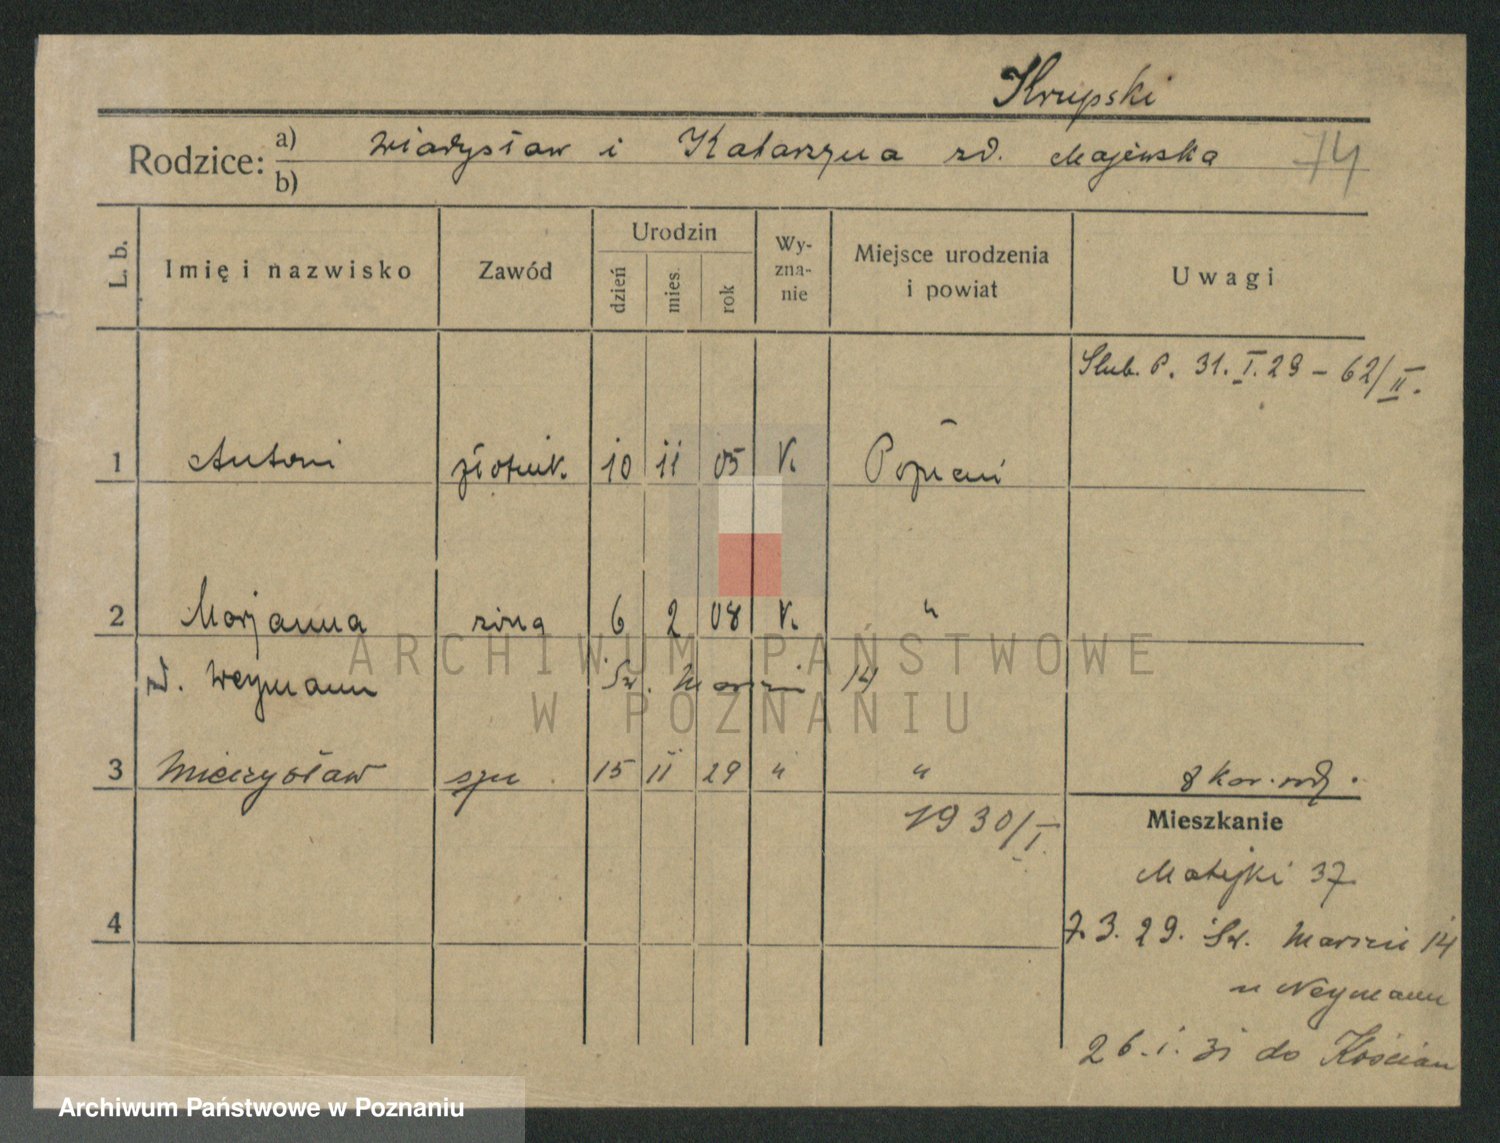 Krupski
Rodzice: a) Władysław i Katarzyna zd. Majewska 74
b)
L. b. Imię i nazwisko Zawód Urodzin dzień mies. rok Wy-zna-nie Miejsce urodzenia i powiat Uwagi
Ślub. P. 31. I. 29 – 62/II.
1 Antoni złotnik. 10 11 05 k. Poznań
2 Marjanna żona 6 2 08 k. "
d. Weymann Św. Marcin 14
3 Mieczysław syn 15 II 29 " "
1930/I.
Mieszkanie
Matejki 37
4 7. 3. 29. Św. Marcin 14
u Neymann
26. 1. 31 do Kościan
ARCHIWUM PAŃSTWOWE
W POZNANIU
Archiwum Państwowe w Poznaniu